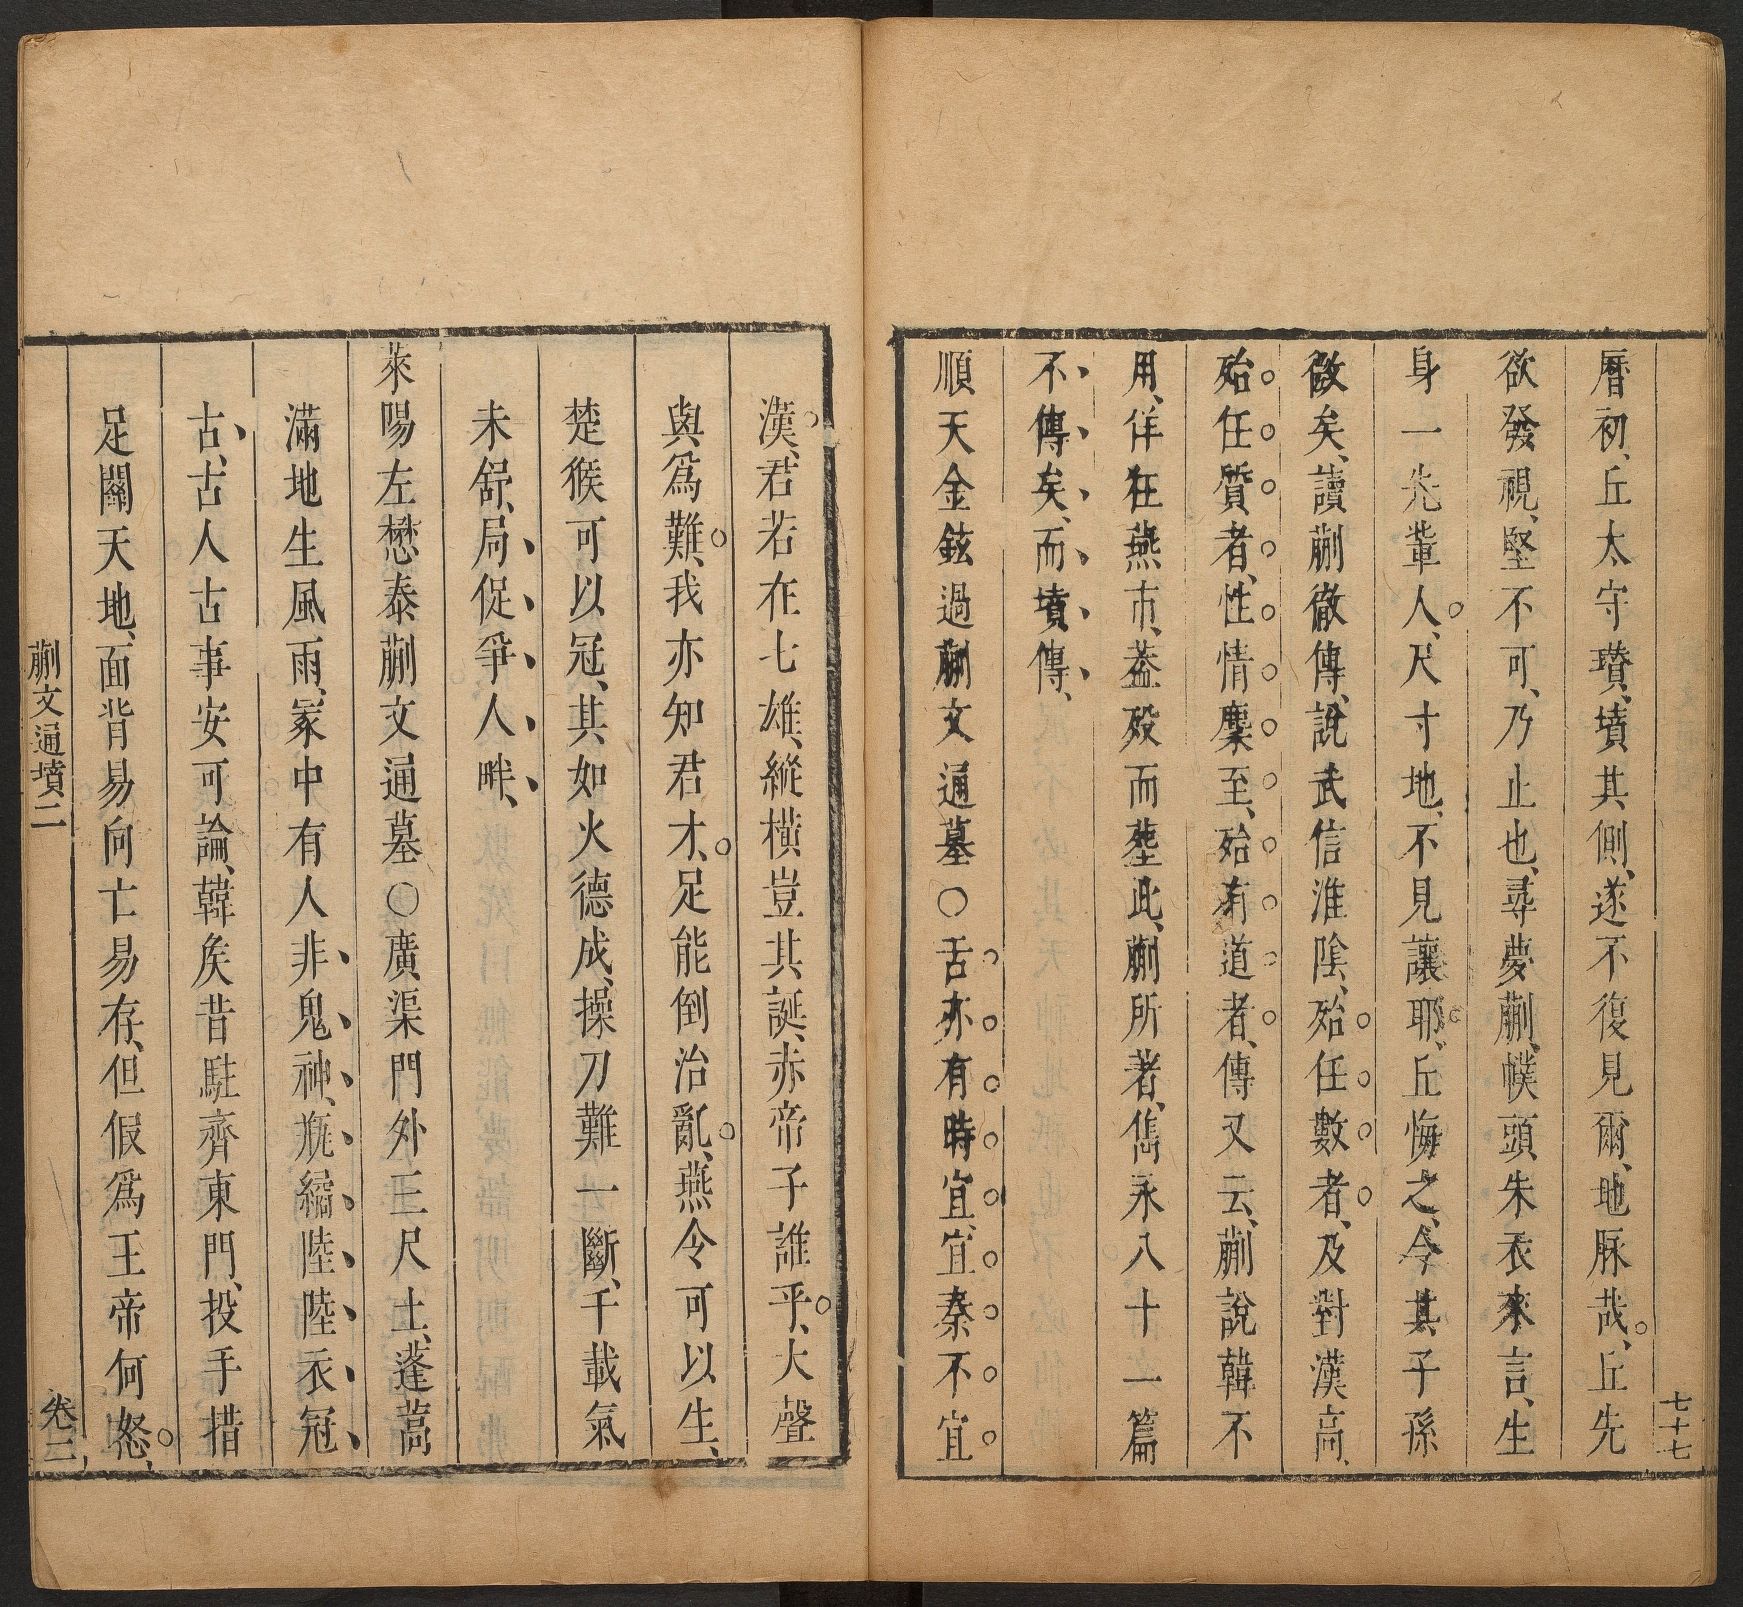 七十七
曆初、丘太守瓚、墳其側、遂不復見爾、地脉哉、丘先
欲發視、堅不可、乃止也、尋夢蒯、幞頭朱衣來言、生
身一先輩人、尺寸地、不見讓耶、丘悔之、今其子孫
微矣、讀蒯徹傳、說武信淮陰、殆任數者、及對漢高、
殆任質者、性情麇至、殆有道者、傳又云、蒯說韓不
用、佯狂燕市、蓋歿而塟此、蒯所著、雋永八十一篇
不傳矣、而墳傳、
順天金鉉過蒯文通墓○舌亦有時宜、宜秦不宜
漢、君若在七雄、縱橫豈其誕、赤帝子誰乎、大聲
與爲難、我亦知君才、足能倒治亂、燕令可以生、
楚猴可以冠、其如火德成、操刀難一斷、千載氣
未舒、局促爭人畔、
萊陽左懋泰蒯文通墓○廣渠門外三尺土、蓬蒿
滿地生風雨、冢中有人非鬼神、旒繡陸陸衣冠
古、古人古事安可論、韓矦昔駐齊東門、投手措
足關天地、面背易向亡易存、但假爲王帝何怒、
蒯文通墳二
卷三